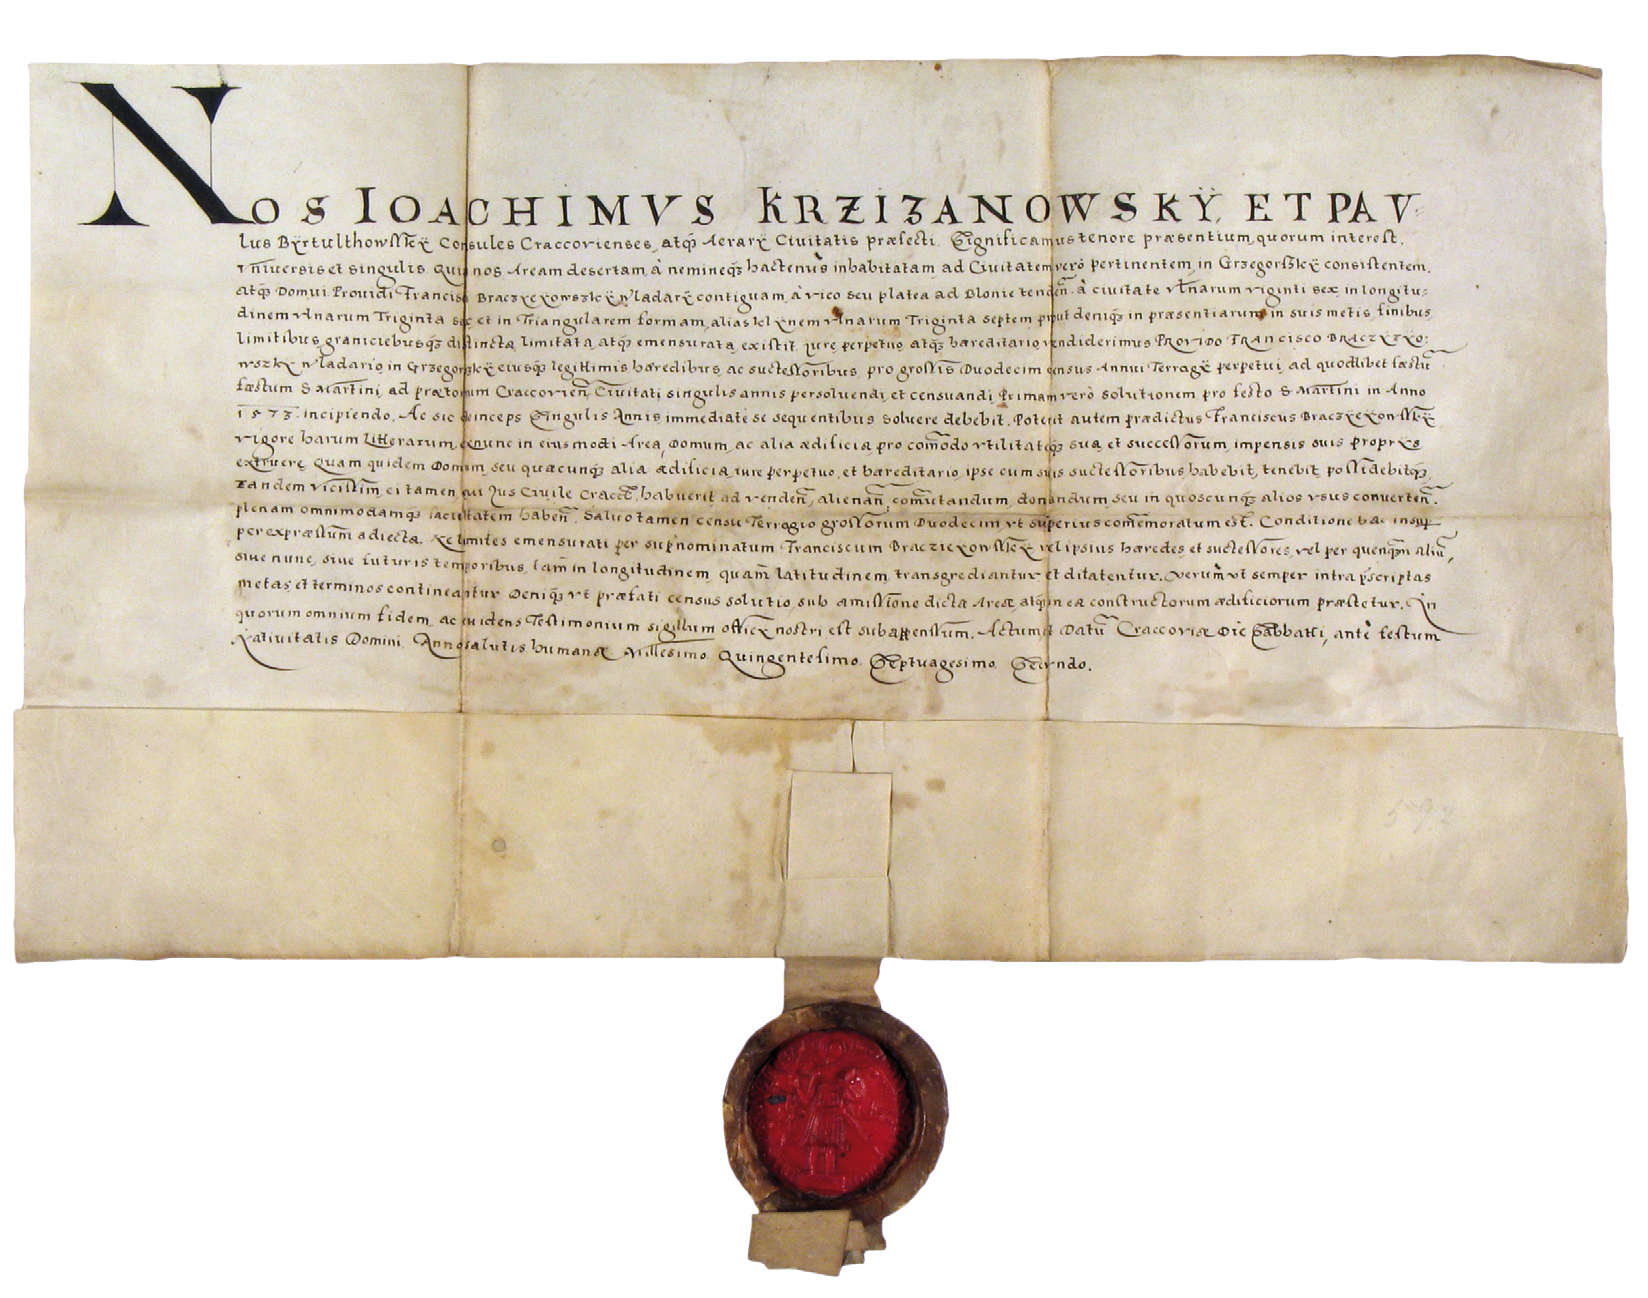 NOS IOACHIMVS KRZIZANOWSKY, ET PAV
lus Byrtulthowssky Consules Craccovienses, atq; Aerary Ciuitatis præfecti. Significamus tenore præsentium, quorum interest,
vniuersis et singulis. Quia nos Aream desertam, à nemineq; hactenus inhabitatam ad Ciuitatem verò pertinentem, in Grzegorsky consistentem,
atq; Domui Prouidi Francisci wladary contiguam, à vico seu platea ad Blonie tenden. à ciuitate vlnarum viginti sex, in longitu-
dinem vlnarum Triginta sex et in Triangularem formam, alias klynem vlnarum Triginta septem prout deniq; in præsentiarum in suis metis, finibus,
limitibus, graniciebusq; distincta, limitata, atq; emensurata, existit, iure perpetuo, atq; hæreditario vendiderimus PROVIDO FRANCISCO BRACZYZXO-
wszky wladario, in Grzegorzky eiusq; legittimis hæredibus, ac successoribus, pro grossis Duodecim census Annui Terragy perpetui, ad quodlibet fæstu
fæstum S Martini, ad prætorium Craccovien Ciuitati singulis annis persoluendi, et censuandi, Primam verò solutionem pro festo S Martini in Anno
1573. incipiendo. Ac sic deinceps Singulis Annis immediatè se sequentibus soluere debebit. Poterit autem prædictus Franciscus
vigore harum Litterarum, exnunc in eiusmodi Area, Domum, ac alia ædificia pro comodo vtilitateq; sua, et successorum, impensis suis proprys
extruere. Quam quidem Domum, seu quæcunq; alia ædificia, iure perpetuo, et hæreditario, ipse cum suis successoribus habebit, tenebit, possidebitq;,
Tandem vicissim, ei tamen qui Jus Ciuile habuerit ad venden, alienan, comutandum, donandum, seu in quoscunq; alios vsus conuerten.
plenam omnimodamq; facultatem haben. Saluo tamen censu Terragio grossorum Duodecim, vt superius comemoratum est. Conditione hac insup
per expræssum adiecta. Ne limites emensurati per supnominatum Franciscum vel ipsius hæredes, et successores, vel per quenqm aliu,
siue nunc, siue futuris temporibus, tam in longitudinem, quam latitudinem, transgrediantur, et dilatentur. Verum vt semper intra pscriptas
metas, et terminos contineantur. Deniq; vt præfati census solutio, sub amissione dictæ Areæ, atq; in ea constructorum ædificiorum præstetur. In
quorum omnium fidem, ac euidens Testimonium sigillum officy nostri est subappensum. Actum et Datu Craccoviæ Die Sabbathi, ante festum
Natiuitatis Domini. Anno salutis humanæ Millesimo. Quingentesimo. Septuagesimo. Secundo.
592